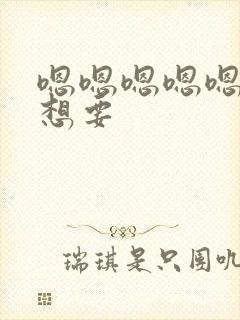 嗯嗯嗯嗯嗯
想要
瑞琪是只圆叽